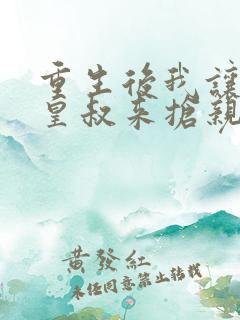 重生後我讓
皇叔來搶親
黃發紅
未經同意禁止轉載